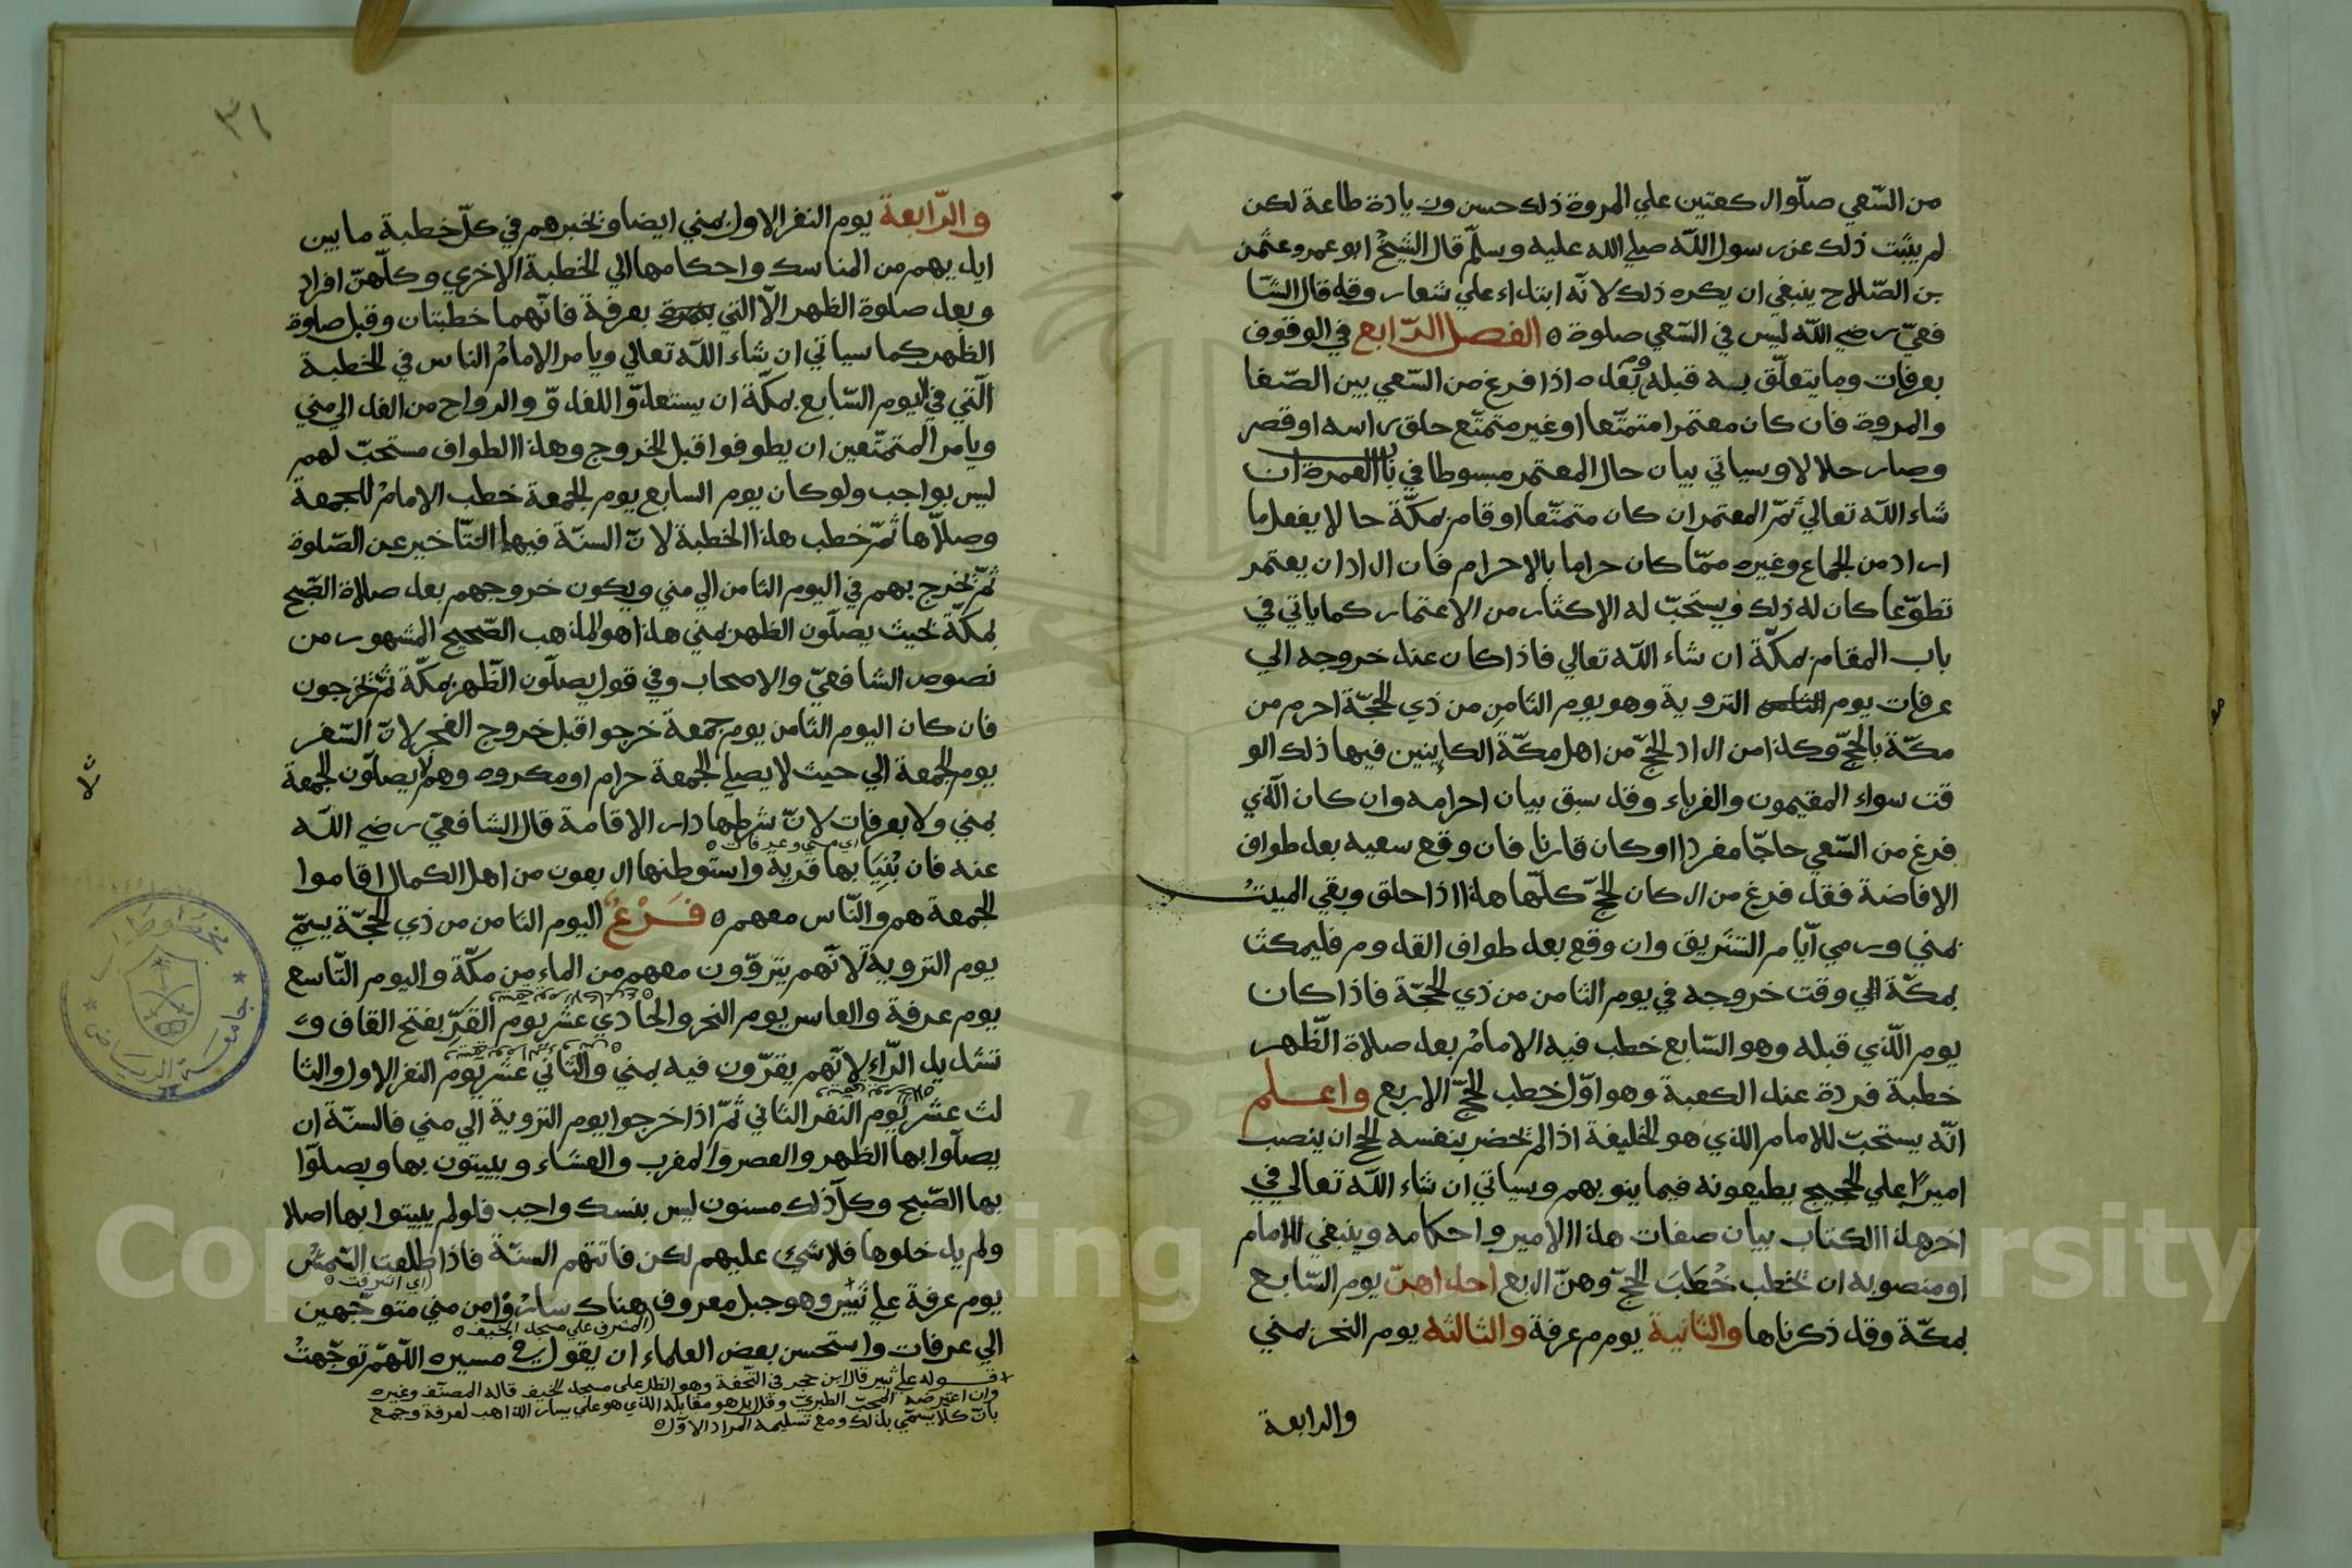 من السّعي صلّوا ركعتين علي المروة ذلك حسن وزيادة طاعة لكن
لم يثبت ذلك عن رسول اللّه صلي الله عليه وسلّم قال الشّيخ ابو عمرو عثمن
بن الصّلاح ينبغي ان يكره ذلك لانّه ابتداء علي شعار وقد قال الشا
فعيّ رضي اللّه ليس في السّعي صلوة ٥ الفصل الرّابع في الوقوف
بعرفات وما يتعلّق به قبله وبعده اذا فرغ من السّعي بين الصّفا
والمروة فان كان معتمرا متمتّعا او غير متمتّع حلق راسه او قصر
وصار حلالا وسياتي بيان حال المعتمر مبسوطا في باب العمرة ان
شاء اللّه تعالي ثمّ المعتمر ان كان متمتّعا اوقام بمكّة حالا يفعل ما
اراد من الجماع وغيره ممّا كان حراما بالاحرام فان اراد ان يعتمر
تطوّعا كان له ذلك ويستحبّ له الاكثار من الاعتمار كما ياتي في
باب المقام بمكّة ان شاء اللّه تعالي فاذا كان عند خروجه الي
عرفات يوم التروية وهو يوم الثامن من ذي الحجّة احرم من
مكّة بالحجّ وكذا من اراد الحجّ من اهل مكّة الكاينين فيها ذلك الو
قت سواء المقيمون والغرباء وقد سبق بيان احرامه وان كان الّذي
فرغ من السّعي حاجّا مفردا او كان قارنا فان وقع سعيه بعد طواف
الافاضة فقد فرغ من اركان الحجّ كلّها هذا اذا حلق وبقي المبيت
بمني ورمي ايّام التشريق وان وقع بعد طواف القدوم فليمكث
بمكّة الي وقت خروجه في يوم الثامن من ذي الحجّة فاذا كان
يوم الّذي قبله وهو السّابع خطب فيه الامامُ بعد صلاة الظّهر
خطبة فردة عند الكعبة وهو اوّل خطب الحجّ الاربع واعلم
انّه يستحبّ للامام الذي هو الخليفة اذا لم يحضر بنفسه الحج ان ينصب
اميرًا علي الحجيج يطيعونه فيما ينوبهم وسياتي ان شاء اللّه تعالي في
اخر هذا الكتاب بيان صفات هذا الامير واحكامه وينبغي للامام
او منصوبه ان يخطب خُطَبَ الحجّ وهنّ اربع احداهنّ يوم السّابع
بمكّة وقد ذكرناها والثانية يوم عرفة والثالثه يوم النحر بمني
والرابعة
٣١
والرّابعة يوم النفر الاول بمني ايضا ونخبرهم في كلّ خطبة ما بين
ايديهم من المناسك واحكامها الي الخطبة الاخري وكلّهنّ افراد
وبعد صلوة الظهر الاّ التي بعرفة فانّهما خطبتان وقبل صلوة
الظهر كما سياتي ان شاء اللّه تعالي ويامر الامامُ الناس في الخطبة
الّتي في اليوم السّابع بمكّة ان يستعدّوا للغدوّ والرواح من الغد الي مني
ويامر المتمتّعين ان يطوفوا قبل الخروج وهذا الطواف مستحبّ لهم
ليس بواجب ولو كان يوم السابع يوم الجمعة خطب الامامُ للجمعة
وصلاّها ثمّ خطب هذا الخطبة لانّ السنّة فيها التّاخير عن الصّلوة
ثمّ يخرج بهم في اليوم الثامن الي مني ويكون خروجهم بعد صلاة الصّبح
بمكّة بحيث يصلّون الظهر بمني هذا هو المذهب الصّحيح المشهور من
نصوص الشافعيّ والاصحاب وفي قول يصلّون الظّهر بمكّة ثمّ يخرجون
فان كان اليوم الثامن يوم جمعة خرجوا قبل خروج الفجر لانّ السّفر
يوم الجمعة الي حيث لا يصلي الجمعة حرام او مكروه وهم لا يصلّون الجمعة
بمني ولا بعرفات لانّ شرطها دار الاقامة قال الشافعيّ رضي اللّه
اي مني وعرفات ٥
عنه فان بُنِيَا بها قرية واستوطنها اربعون من اهل الكمال اقاموا
الجمعة هم والنّاس معهم ٥ فَرْعٌ اليوم الثامن من ذي الحجّة يسمّي
يوم التروية لانّهم يتروّون معهم من الماء من مكّة واليوم التّاسع
يوم عرفة والعاشر يوم النحر والحادي عشر يوم القَرّ بفتح القاف و
تشديد الرّاء لانّهم يقرّون فيه بمني والثاني عشر يوم النفر الاول والثا
لث عشر يوم النفر الثاني ثمّ اذا خرجوا يوم التروية الي مني فالسنّة ان
يصلّوا بها الظهر والعصر والمغرب والعشاء ويبيتون بها ويصلّوا
بها الصّبح وكلّ ذلك مسنون ليس بنسك واجب فلو لم يبيتوا بها اصلا
ولم يدخلوها فلا شيء عليهم لكن فاتتهم السنّة فاذا طلعت الشّمسُ
(اي اشرقت ٥
يوم عرفة علي ثَبِير وهو جبل معروف هناك سارُوْا من مني متوجّهين
(المشرف علي مسجد الخيف ٥
الي عرفات واستحسن بعض العلماء ان يقول في مسيره اللّهمّ توجّهتُ
قوله علي ثبير قال ابن حجر في التّحفة وهو المطلّ علي مسجد الخيف قاله المصنّف وغيره
وان اعترضه المحبّ الطبريّ وقال بل هو مقابله الذي هو علي يسار الذاهب لعرفة وجمع
بانّ كلا يسمّي بذلك ومع تسليمه المراد الاوّل ٥
جامعة الرياض